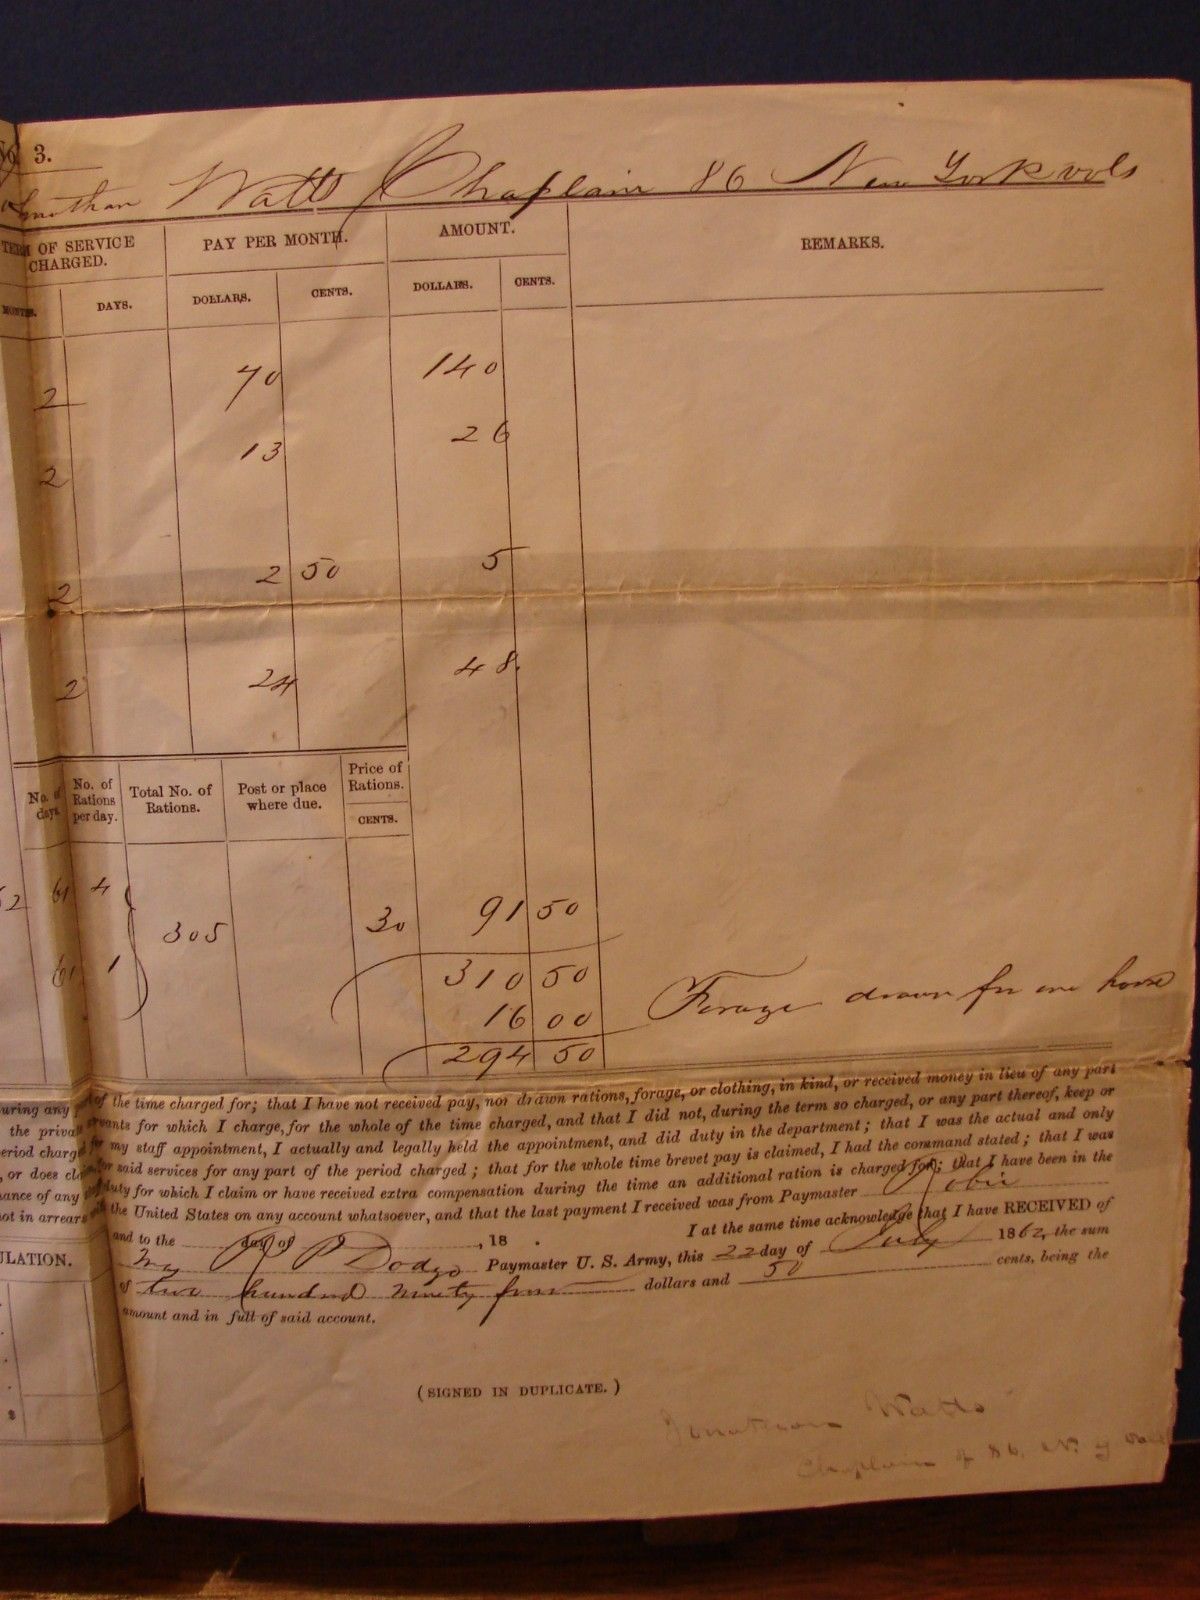 No 3.
Jonathan Watts Chaplain 86 New York vols
TERM OF SERVICE CHARGED.
PAY PER MONTH.
AMOUNT.
REMARKS.
MONTHS. DAYS. DOLLARS. CENTS. DOLLARS. CENTS.
2 70 140
2 13 26
2 2 50 5
2 24 48.
No. of days. No. of Rations per day. Total No. of Rations. Post or place where due. Price of Rations.
CENTS.
62 61 4
305 30 91 50
61 1
310 50
16 00 Forage drawn for one horse
294 50
during any part of the time charged for; that I have not received pay, nor drawn rations, forage, or clothing, in kind, or received money in lieu of any part
the private servants for which I charge, for the whole of the time charged, and that I did not, during the term so charged, or any part thereof, keep or
period charged for my staff appointment, I actually and legally held the appointment, and did duty in the department; that I was the actual and only
, or does said services for any part of the period charged; that for the whole time brevet pay is claimed, I had the command stated; that I was
of any duty for which I claim or have received extra compensation during the time an additional ration is charged for; that I have been in the
not in arrears with the United States on any account whatsoever, and that the last payment I received was from Paymaster
and to the day of , 18 . I at the same time acknowledge that I have RECEIVED of
Dodge Paymaster U. S. Army, this 22 day of July 1862, the sum
of two hundred ninety four dollars and 50 cents, being the
amount and in full of said account.
ULATION.
(SIGNED IN DUPLICATE.)
$
Jonathan Watts
Chaplain of 86. N. Y Vols